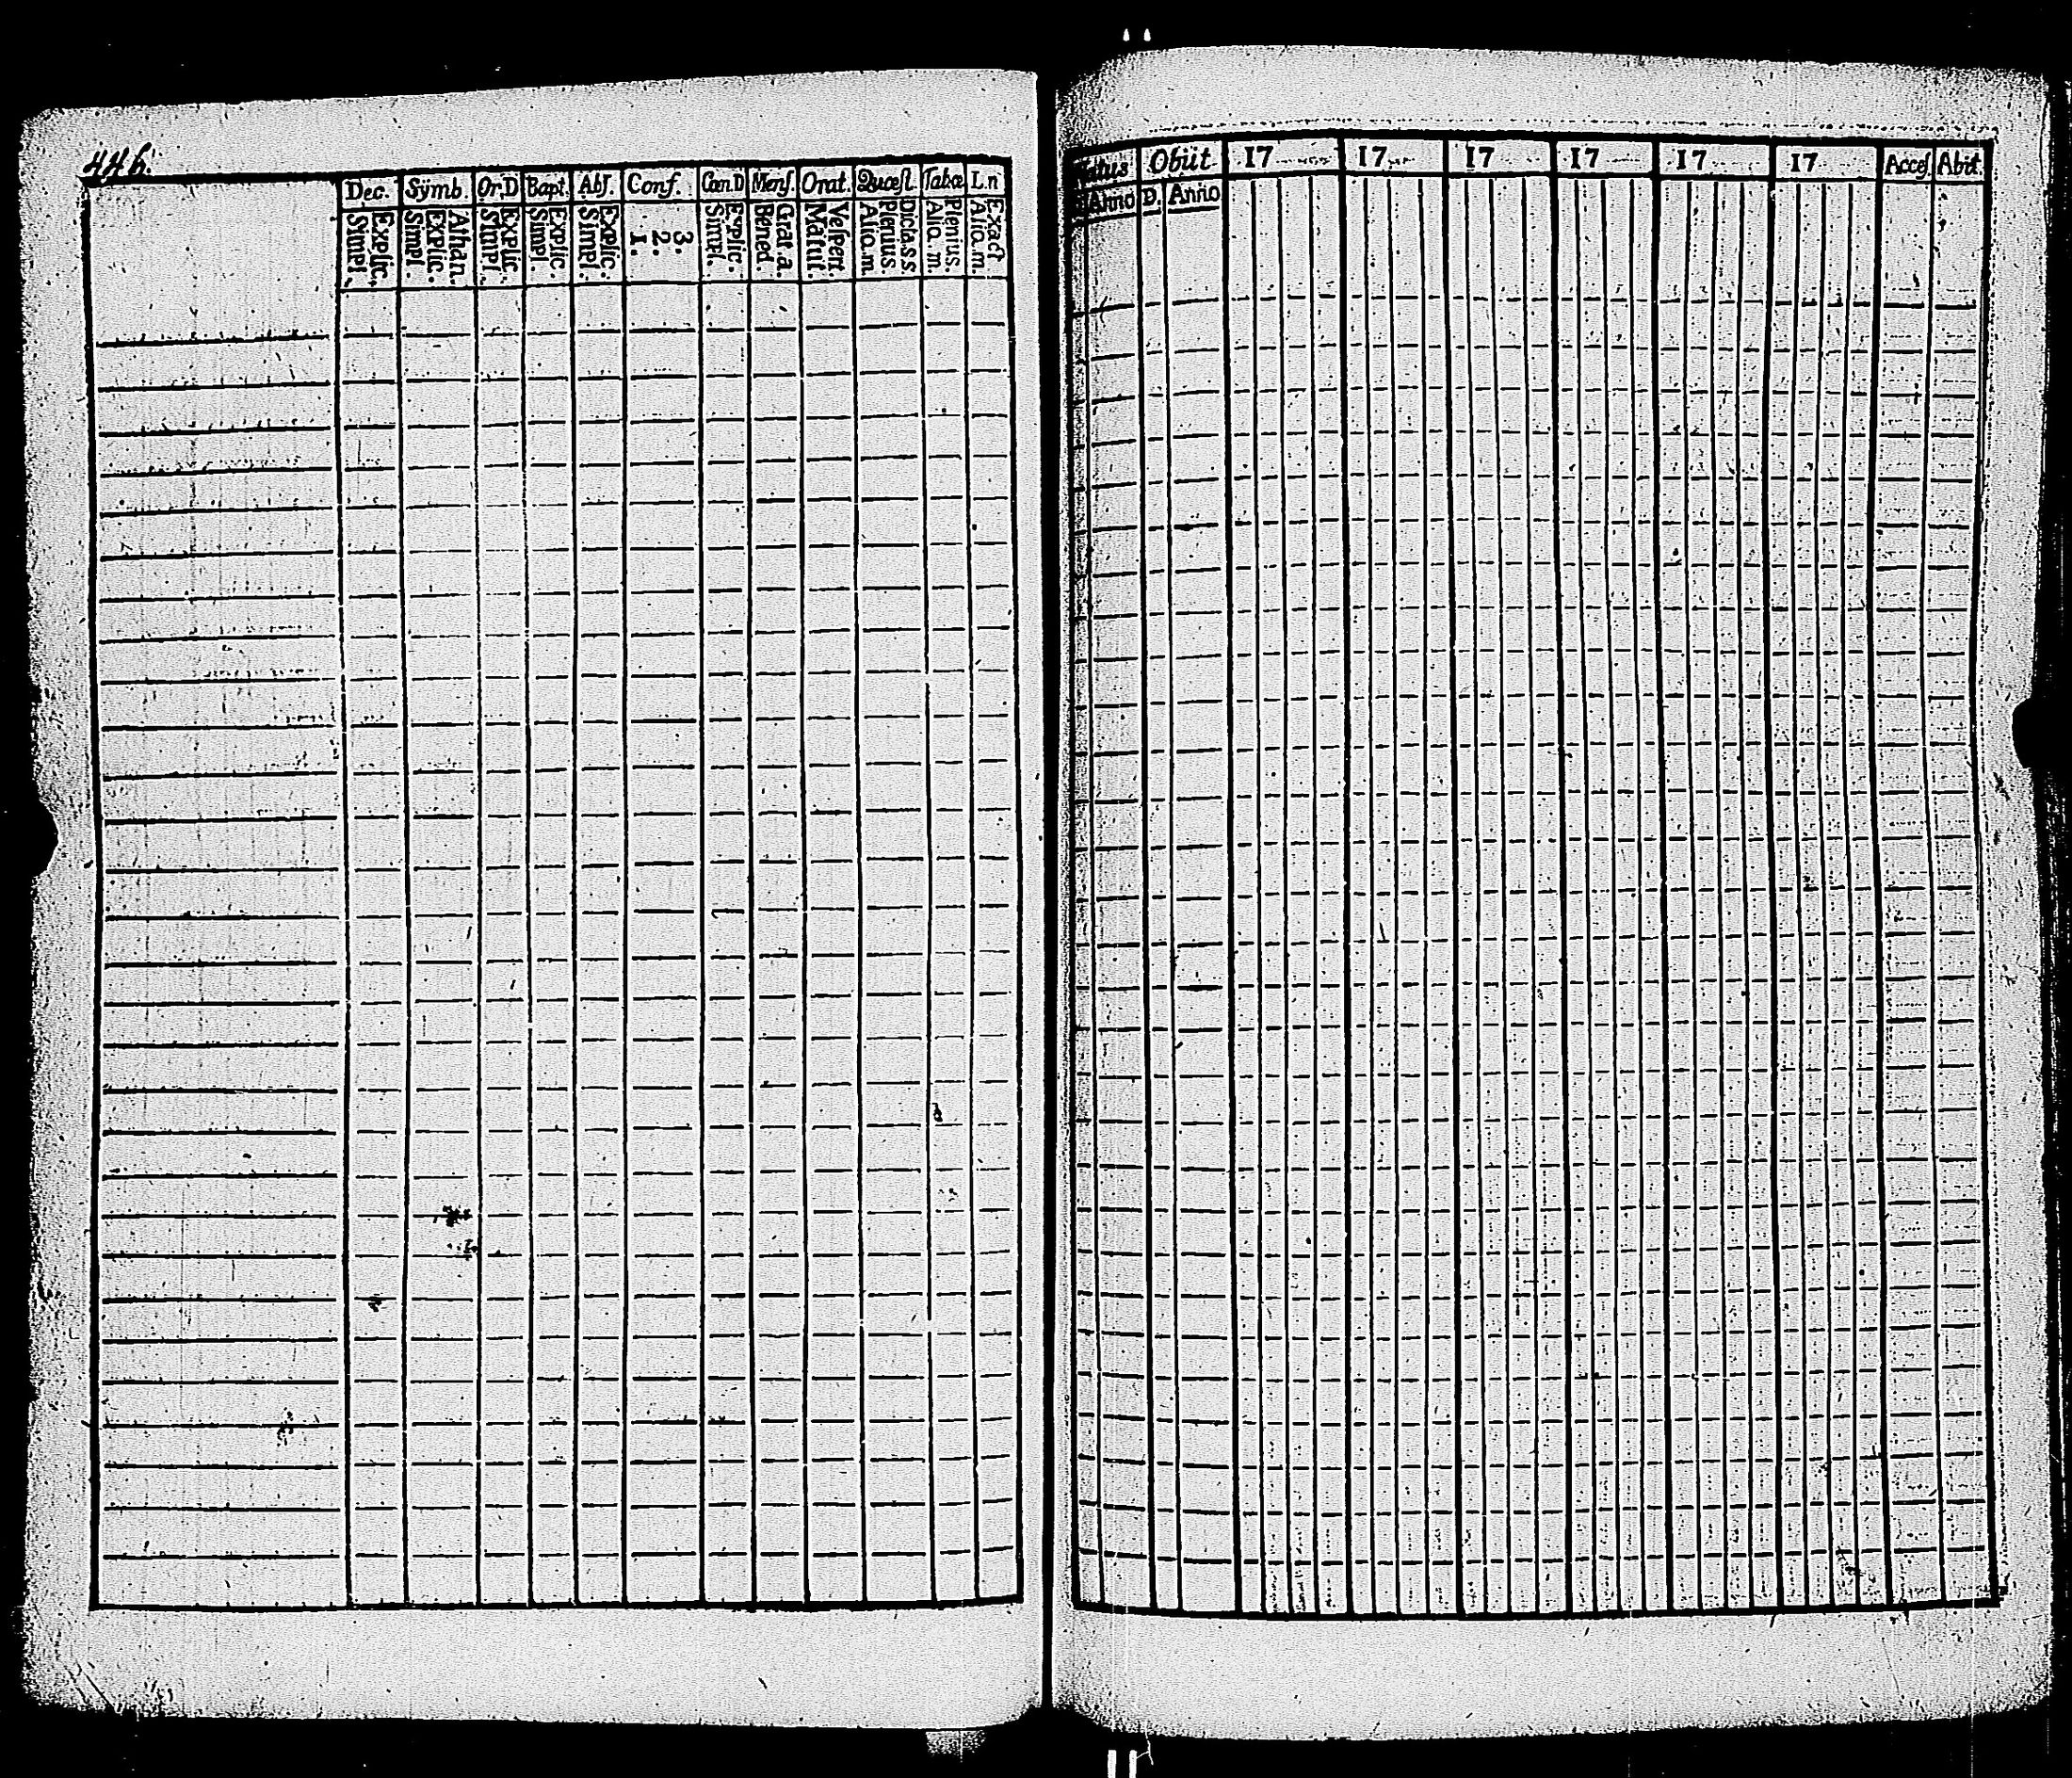 446.
Dec. Sÿmb. Or.D Bapt. Abs. Conf. Can.D Mens. Orat. Quæst. Tabæ L.n
Explic. Simpl.
Athan. Explic. Simpl.
Explic. Simpl.
Explic. Simpl.
Explic. Simpl.
3. 2. 1.
Explic. Simpl.
Grat.a. Bened.
Vesper. Matut.
Dicta.s.s. Plenius Alio.m.
Plenius. Alio.m.
Exact Alio.m.
Natus Obiit 17 17 17 17 17 17 Acces Abit.
Anno D. Anno